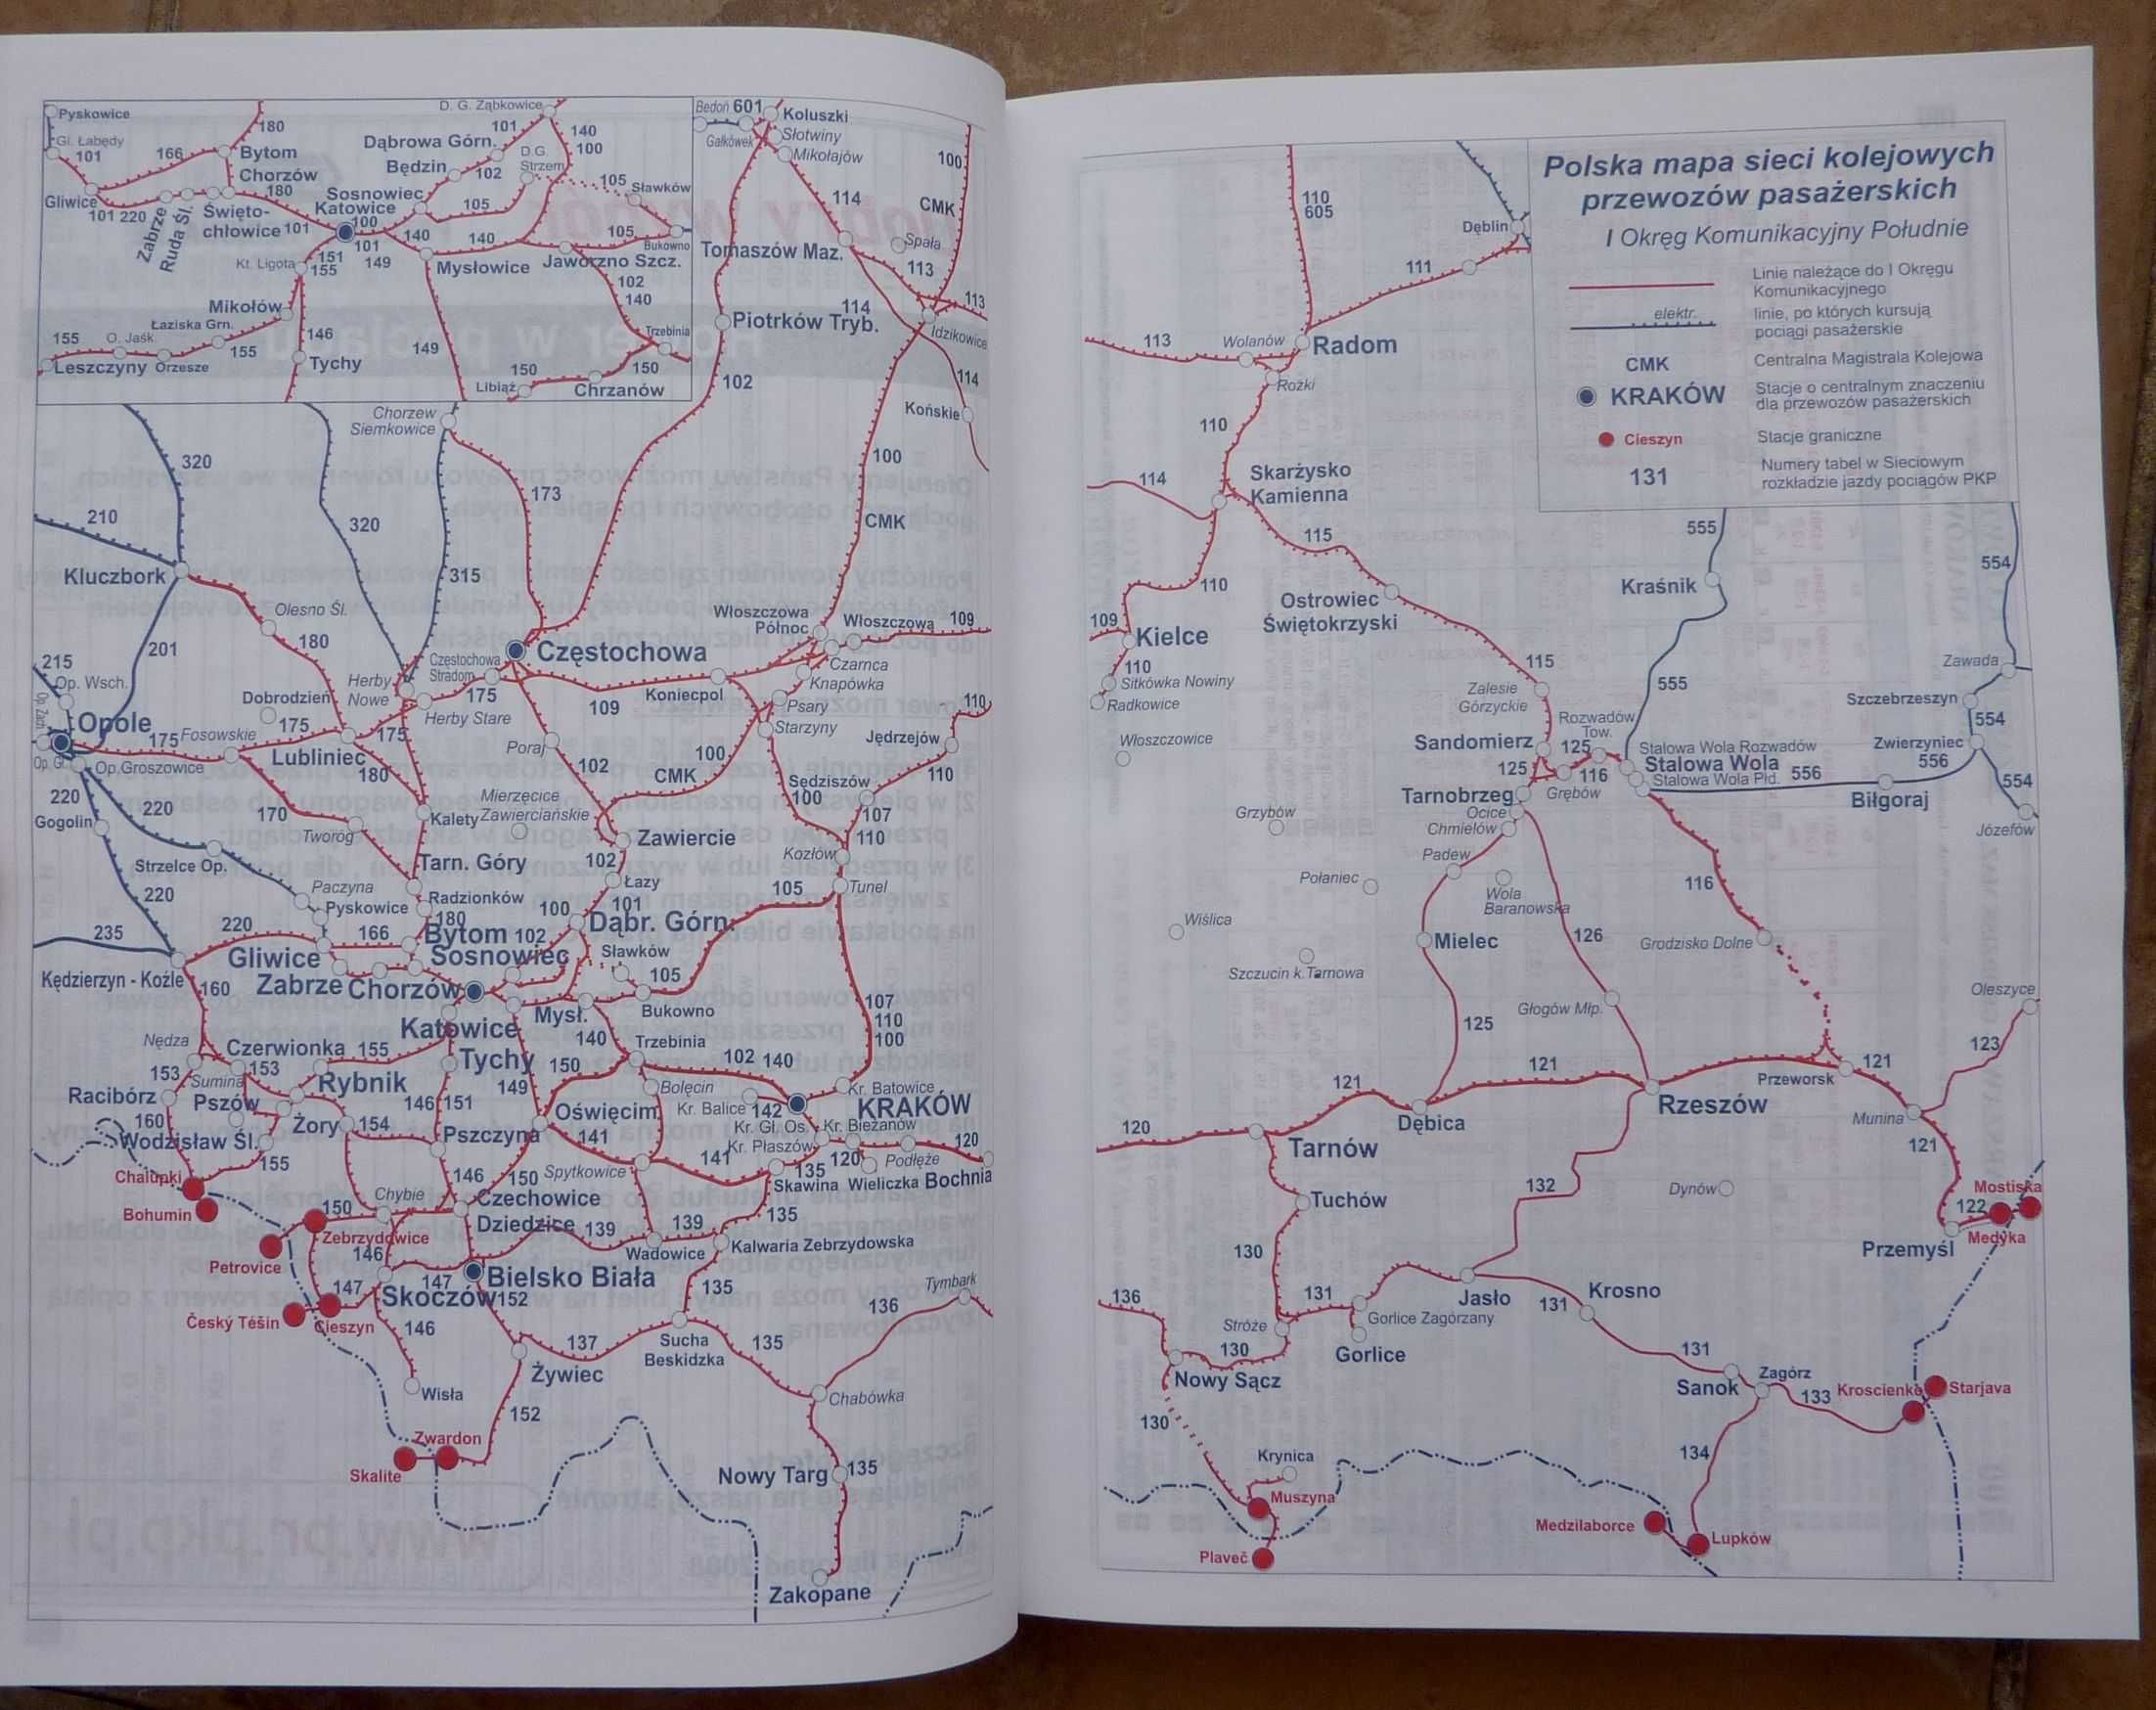 Pyskowice
Gł. Łabędy
101
166
180
Bytom
Chorzów
180
Gliwice
101 220
Zabrze
Ruda Śl.
Święto-
chłowice 101
D. G. Ząbkowice
101
140
100
Dąbrowa Górn.
Będzin
102
D.G.
Strzem.
105
Sławków
Sosnowiec
Katowice
100
105
101
149
140
140
105
Bukowno
Kt. Ligota
151
155
Mysłowice
Jaworzno Szcz.
102
140
Mikołów
Łaziska Grn.
155
O. Jaśk.
155
146
149
Trzebinia
Leszczyny
Orzesze
Tychy
150
150
Libiąż
Chrzanów
Bedoń
601
Koluszki
Gałkówek
Słotwiny
Mikołajów
100
114
CMK
Tomaszów Maz.
Spała
113
114
113
Piotrków Tryb.
Idzikowice
102
114
Końskie
Chorzew
Siemkowice
320
100
173
210
320
CMK
Kluczbork
315
Olesno Śl.
180
Włoszczowa
Północ
Włoszczowa
109
201
Częstochowa
215
Częstochowa
Stradom
Czarnca
Op. Wsch.
Herby
Nowe
175
Koniecpol
Knapówka
Dobrodzień
Herby Stare
109
Psary
110
Opole
Op. Zach.
175
Fosowskie
175
175
Starzyny
Jędrzejów
Op. Gł.
Op.Groszowice
Lubliniec
Poraj
100
102
CMK
180
Sędziszów
110
220
220
Mierzęcice
Zawierciańskie
100
107
Gogolin
170
Kalety
Tworóg
Zawiercie
110
Kozłów
Strzelce Op.
Tarn. Góry
102
Łazy
Paczyna
Radzionków
105
Tunel
220
Pyskowice
180
100
101
Dąbr. Górn.
235
220
166
Bytom
102
Gliwice
Sosnowiec
Sławków
Kędzierzyn - Koźle
105
160
Zabrze
Chorzów
Bukowno
107
110
100
Katowice
Mysł.
140
Nędza
Czerwionka
155
Trzebinia
Tychy
150
102
140
153
Sumina
153
Rybnik
149
Bolęcin
Kr. Batowice
Racibórz
Pszów
146
151
Oświęcim
Kr. Balice
142
KRAKÓW
160
Żory
154
Kr. Gł. Os.
Kr. Bieżanów
Wodzisław Śl.
Pszczyna
141
Kr. Płaszów
120
155
141
120
Podłęże
Chałupki
146
150
Spytkowice
135
Skawina
Wieliczka
Bochnia
Bohumin
Chybie
Czechowice
Dziedzice
150
139
139
135
Zebrzydowice
Wadowice
Kalwaria Zebrzydowska
Petrovice
146
147
147
Bielsko Biała
135
Tymbark
Skoczów
152
136
Český Těšin
Cieszyn
146
137
Sucha
Beskidzka
135
Żywiec
Wisła
Chabówka
152
Zwardon
Skalite
Nowy Targ
135
Zakopane
Polska mapa sieci kolejowych
przewozów pasażerskich
I Okręg Komunikacyjny Południe
Linie należące do I Okręgu
Komunikacyjnego
elektr.
linie, po których kursują
pociągi pasażerskie
CMK
Centralna Magistrala Kolejowa
KRAKÓW
Stacje o centralnym znaczeniu
dla przewozów pasażerskich
Cieszyn
Stacje graniczne
131
Numery tabel w Sieciowym
rozkładzie jazdy pociągów PKP
110
605
Dęblin
111
113
Wolanów
Radom
Rożki
110
114
Skarżysko
Kamienna
115
555
554
110
Ostrowiec
Świętokrzyski
Kraśnik
109
Kielce
110
Sitkówka Nowiny
Radkowice
115
Zawada
555
Zalesie
Górzyckie
Szczebrzeszyn
Rozwadów
Tow.
554
Włoszczowice
Sandomierz
125
Stalowa Wola Rozwadów
Zwierzyniec
125
Stalowa Wola
116
Stalowa Wola Płd.
556
556
Tarnobrzeg
Grębów
554
Ocice
Biłgoraj
Grzybów
Chmielów
Józefów
Padew
Połaniec
Wola
Baranowska
116
Wiślica
Mielec
126
Grodzisko Dolne
Szczucin k.Tarnowa
Oleszyce
Głogów Młp.
125
123
121
121
121
Przeworsk
Rzeszów
120
Dębica
Munina
Tarnów
121
132
Dynów
Mostiska
Tuchów
122
Medyka
Przemyśl
130
136
131
Jasło
Krosno
131
Stróże
Gorlice Zagórzany
130
Gorlice
131
Nowy Sącz
Sanok
Zagórz
133
Kroscienko
Starjava
130
134
Krynica
Muszyna
Medzilaborce
Lupków
Plaveč